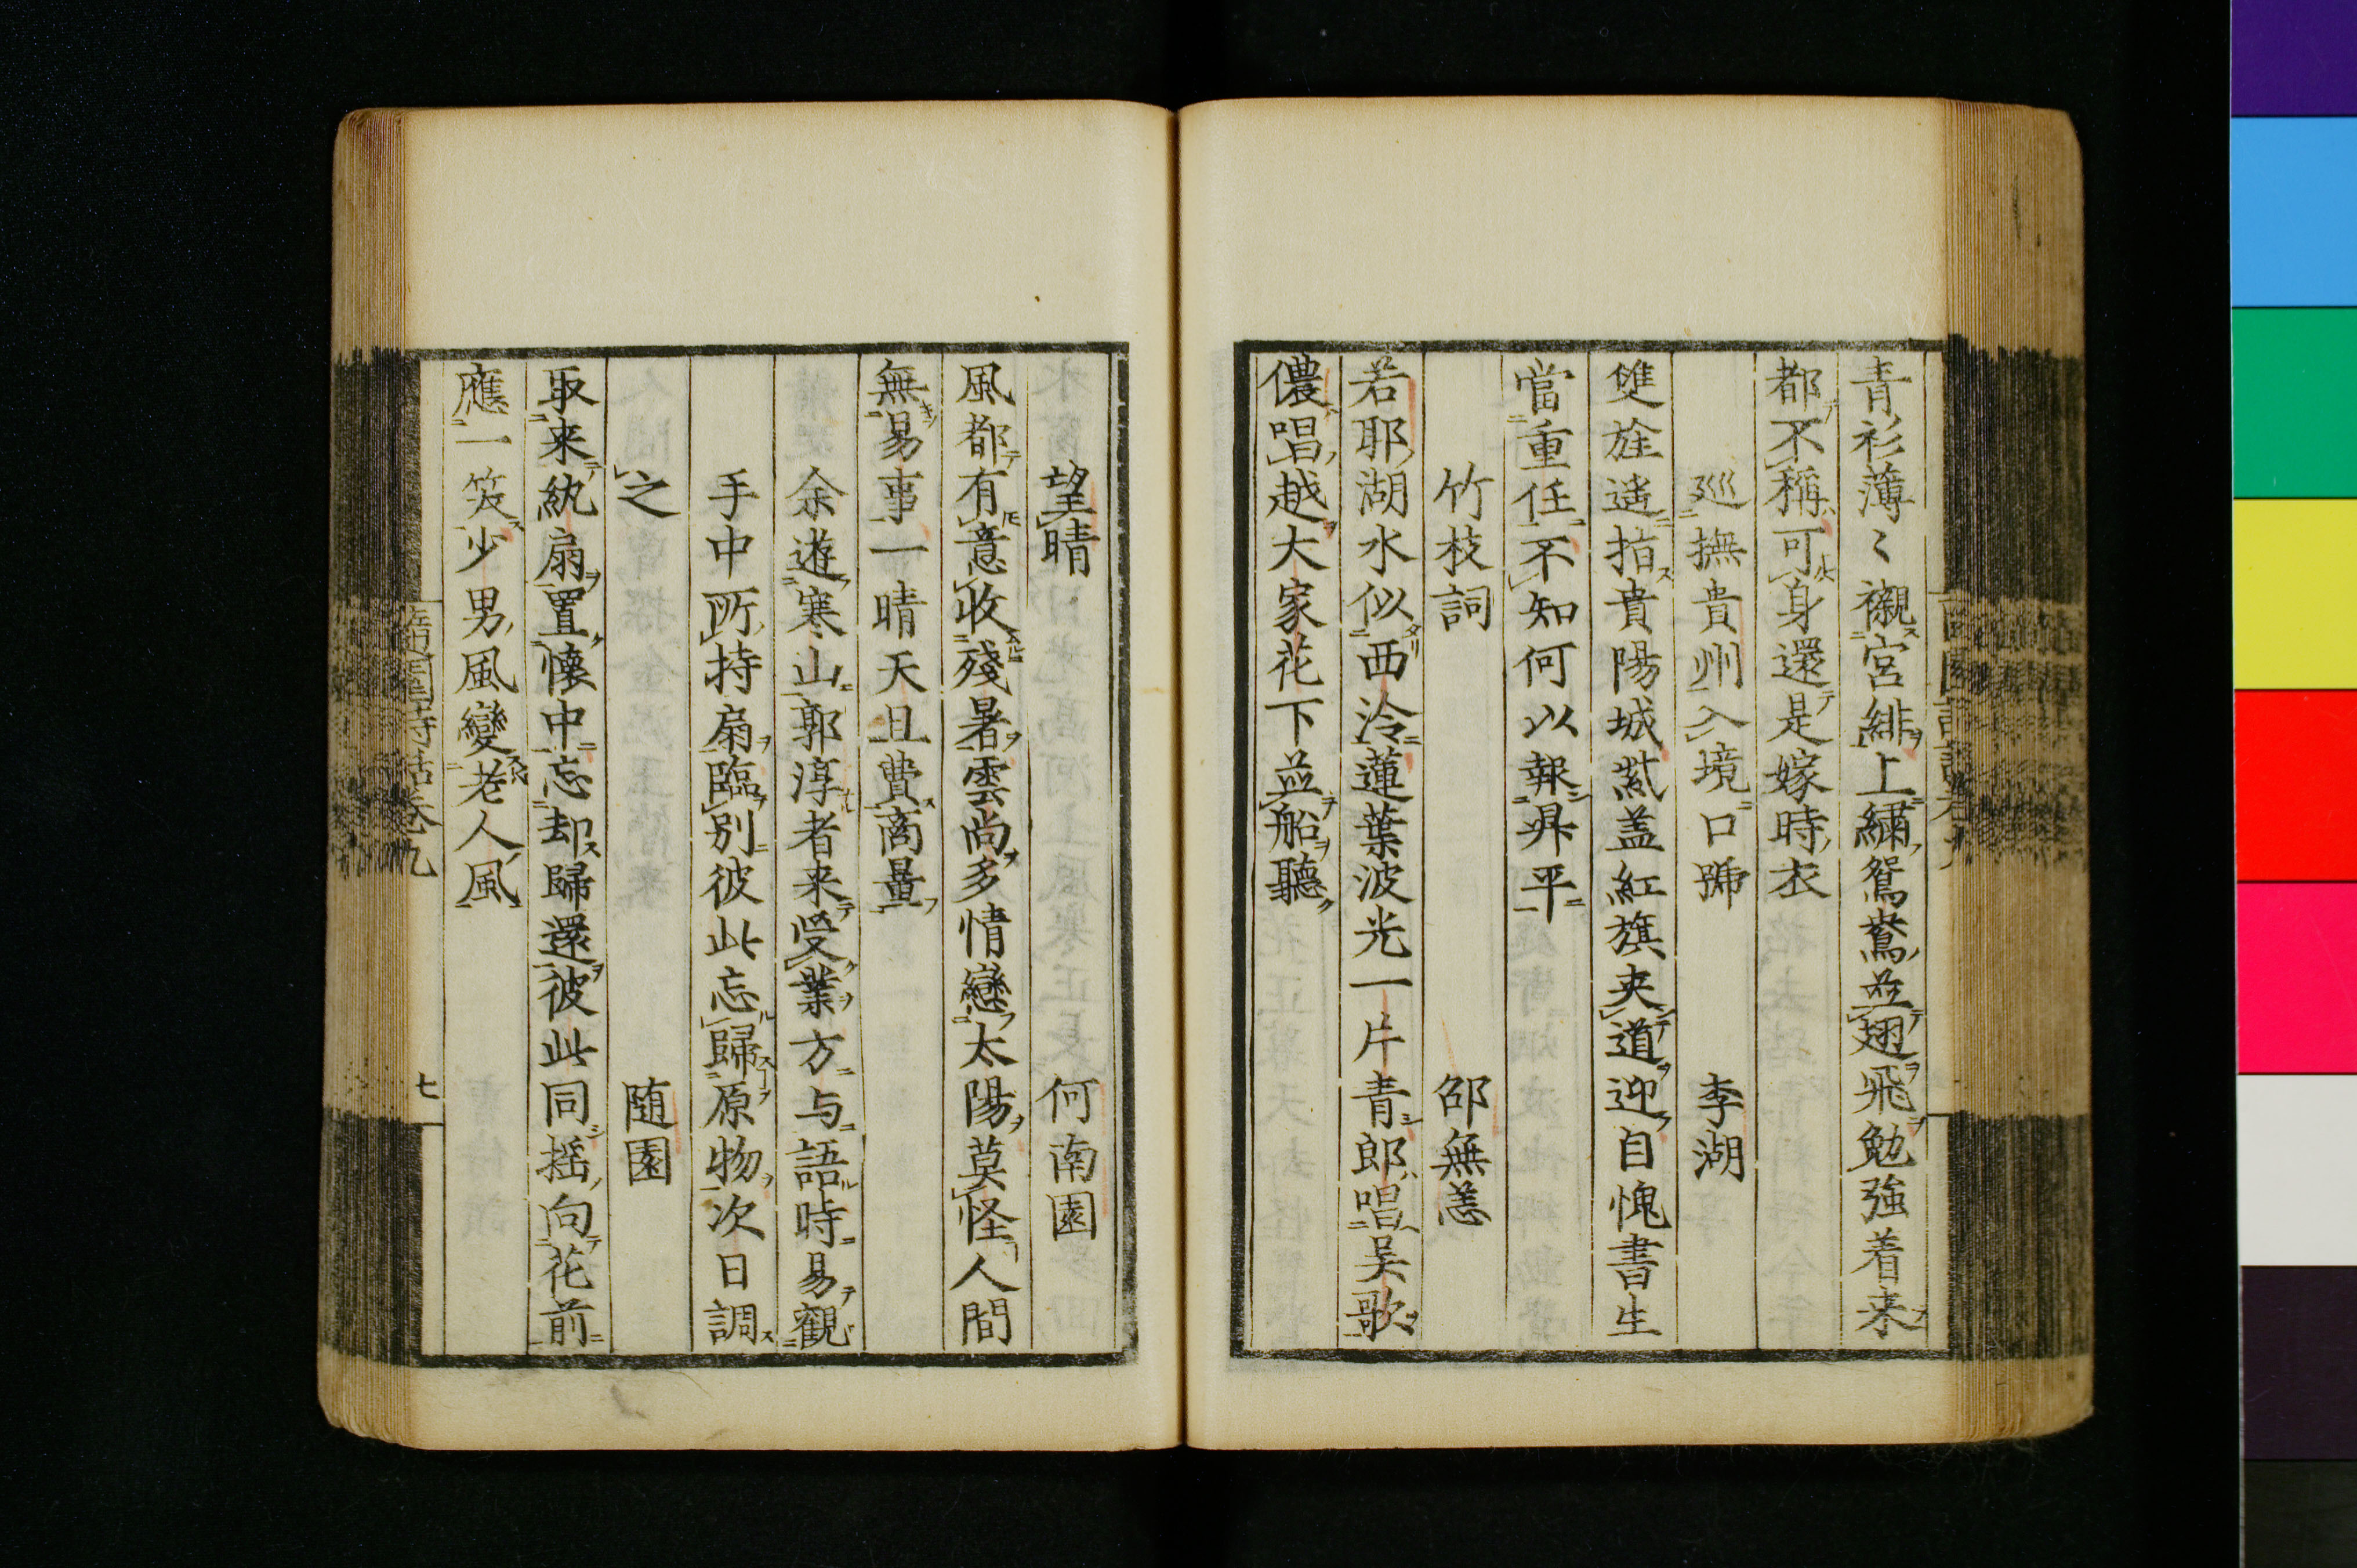 青衫薄〻襯宮緋上繡鴛鴦並翅飛勉強着来
都不稱可身還是嫁時衣
巡撫貴州入境口號 李湖
雙旌遙指貴陽城紫盖紅旗夾道迎自愧書生
當重任不知何以報昇平
竹枝詞 邵無恙
若耶湖水似西泠蓮葉波光一片青郎唱吴歌
儂唱越大家花下並船聽
望晴 何南園
風都有意收殘暑雲尚多情戀太陽莫怪人間
無易事一晴天且費商量
余遊寒山郭淳者来受業方与語時易觀
手中所持扇臨別彼此忘歸原物次日調
之 随園
取来紈扇置懐中忘却歸還彼此同揺向花前
應一笑少男風變老人風
随園詩話巻九
七